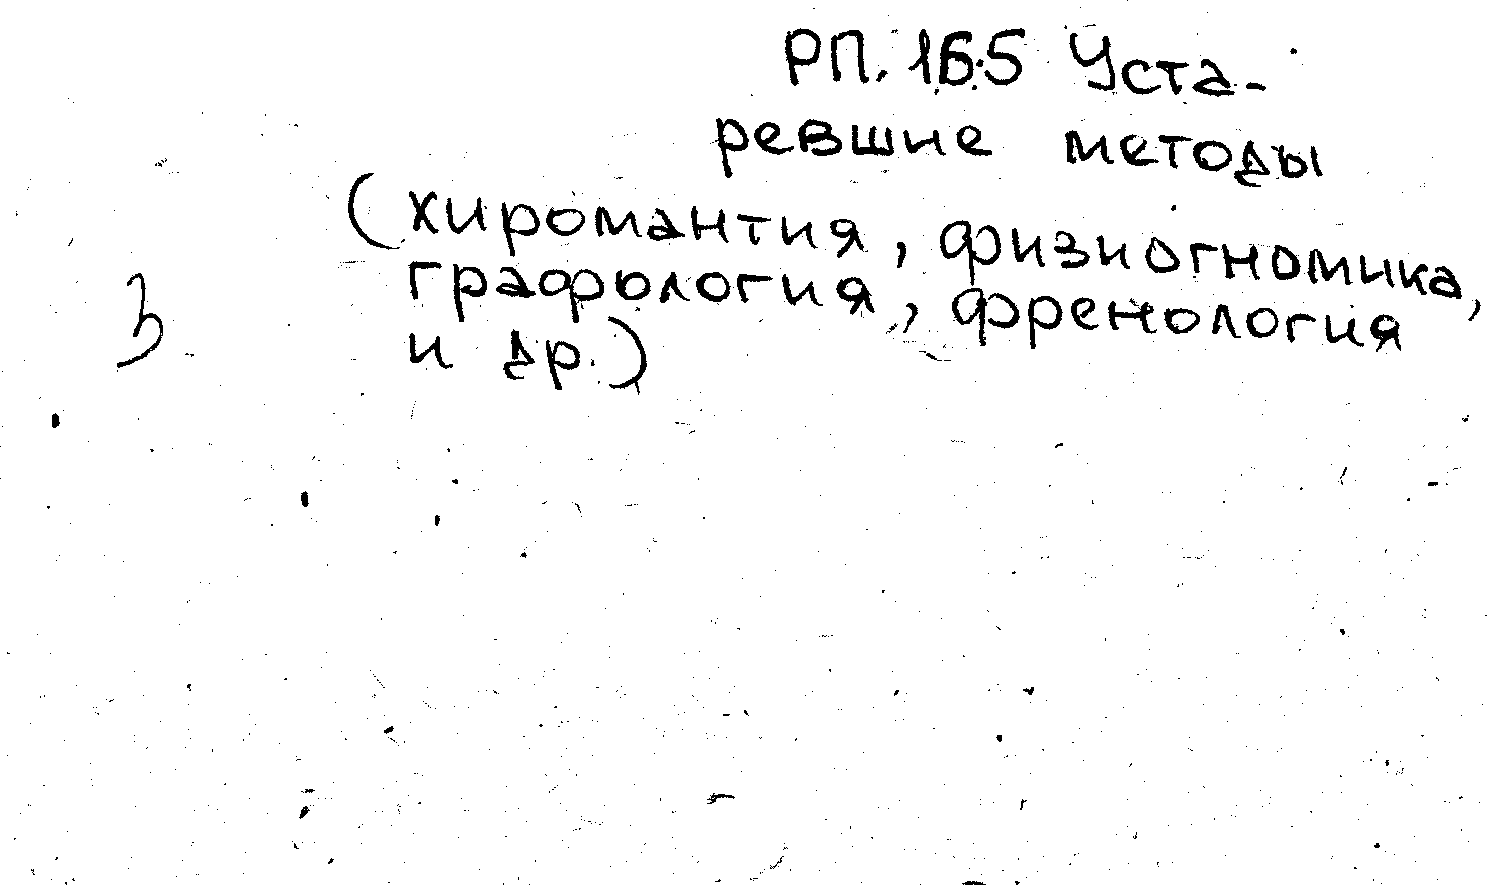 РП. 165 Уста-
ревшие методы
(хиромантия, физиогномика,
графология, френология
и др.)
3